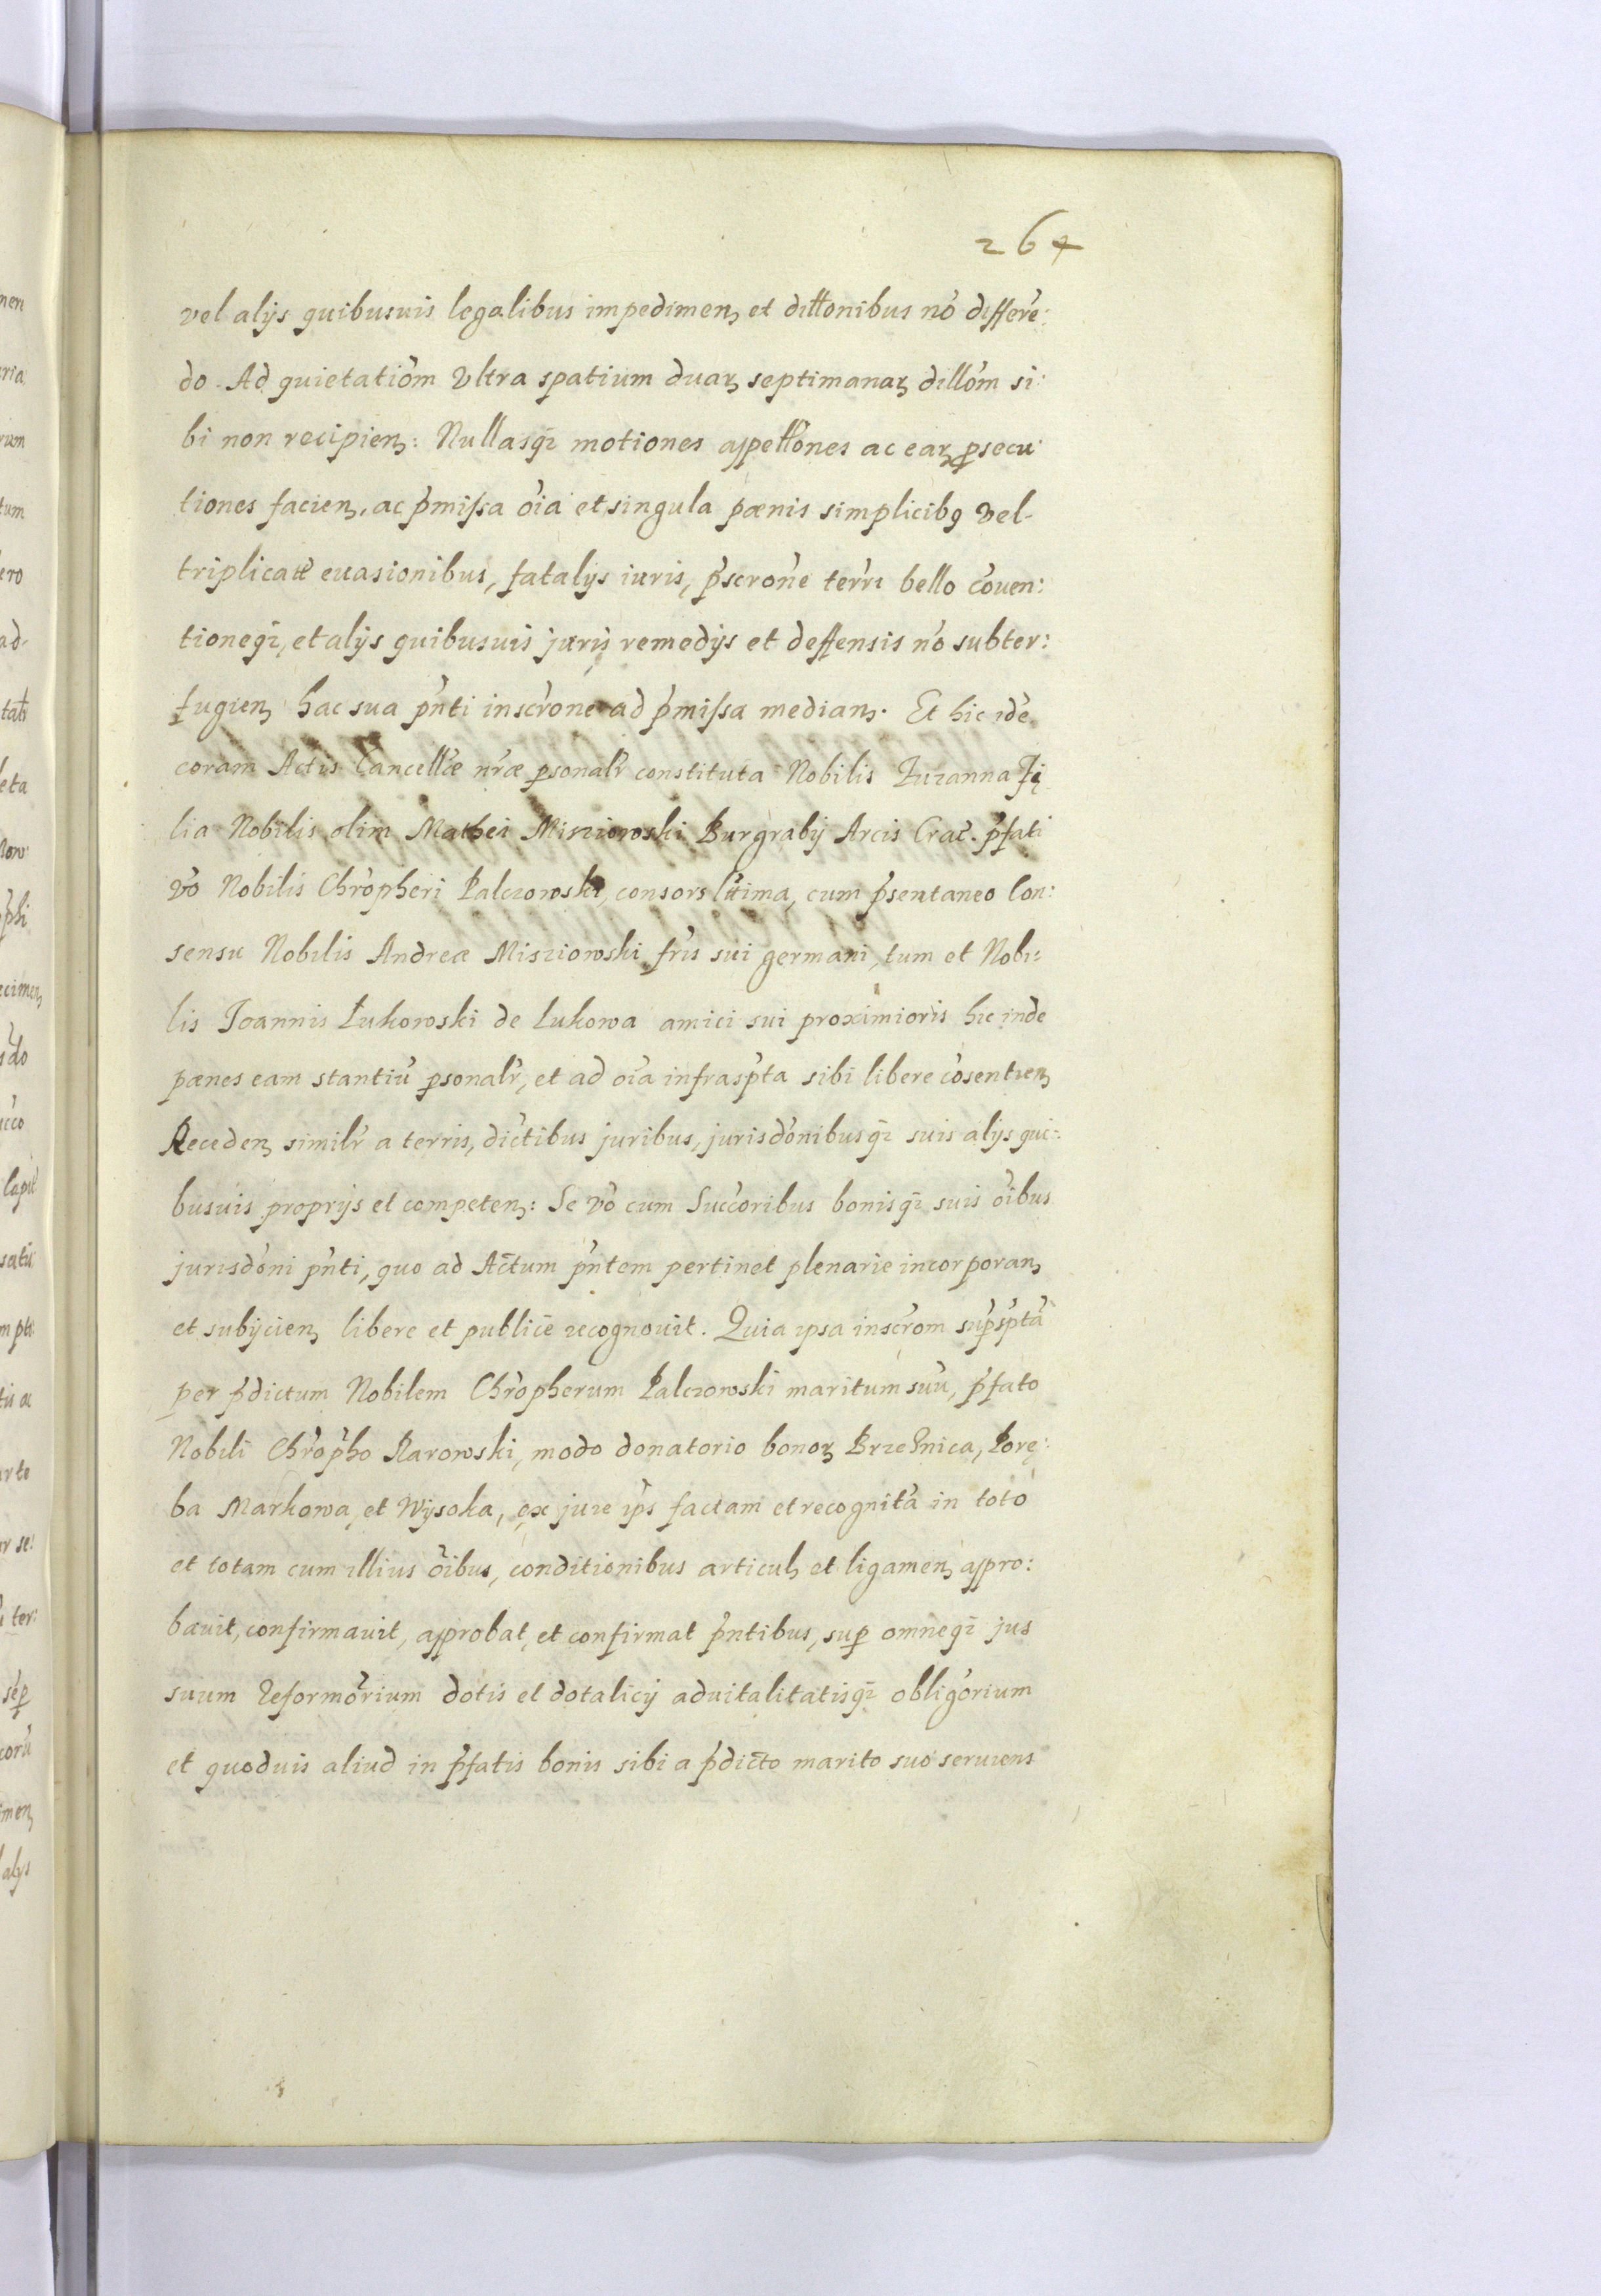 264
vel alijs quibusuis legalibus impedimenʒ et dillonibus nõ differe:
do. Ad quietatiom Vltra spatium duarʒ septimanarʒ dillom si:
bi non recipienʒ: Nullasqʒ motiones appellones ac earʒ ꝓsecu
tiones facienʒ, ac p̃missa õia et singula pœnis simplicibꝯ vel
triplicatꝭ euasionibus, fatalijs iuris, p̃scrone terrꝭ bello cõuen:
tioneqʒ, et alijs quibusuis juris remedijs et deffensis nõ subter:
fugienʒ hac sua p̃nti inscrone ad p̃missa medianʒ. Et hic idẽ
coram Actis Cancellæ nr̃æ ꝑsonalr̃ constituta Nobilis Zuzanna Fi
lia Nobilis olim Mathei Misziowski Burgrabij Arcis Crac̃. p̃fati
võ Nobilis Chr̃opheri Palczowski, consors lt̃tima, cum p̃sentaneo Con:
sensu Nobilis Andreæ Misziowski fr̃is sui germani, tum et Nobi:
lis Joannis Łukowski de Lukowa amici sui proximioris hic inde
pænes eam stantiũ ꝑsonalr̃, et ad oĩa infrasp̃ta sibi libere cõsentienʒ
Recedenʒ similr̃ a terris, dic̃tibus juribus, jurisdõnibusqʒ suis alijs qui:
busuis proprijs et competenʒ: Se võ cum Succ̃oribus bonisqʒ suis õibus
jurisdõni p̃nti, quo ad Actum p̃ntem pertinet plenarie incorporanʒ
et subijcienʒ libere et publice recognouit. Quia ipsa inscr̃om sup̃sp̃tã
per p̃dictum Nobilem Chr̃opherum Palczowski maritum suũ, p̃fato
Nobili Chr̃op̃ho Rarowski, modo donatorio bonorʒ Brzeźnica, Porę:
ba Markowa, et Wysoka, ex jure ip̃s factam et recognitã in toto
et totam cum illius õibus, conditionibus articulʒ et ligamenʒ appro:
bauit, confirmauit, approbat, et confirmat p̃ntibus, suꝑ omneqʒ jus
suum Reformõrium dotis et dotalicij aduitalitatisqʒ obligõrium
et quoduis aliud in p̃fatis bonis sibi a p̃dicto marito suo seruiens